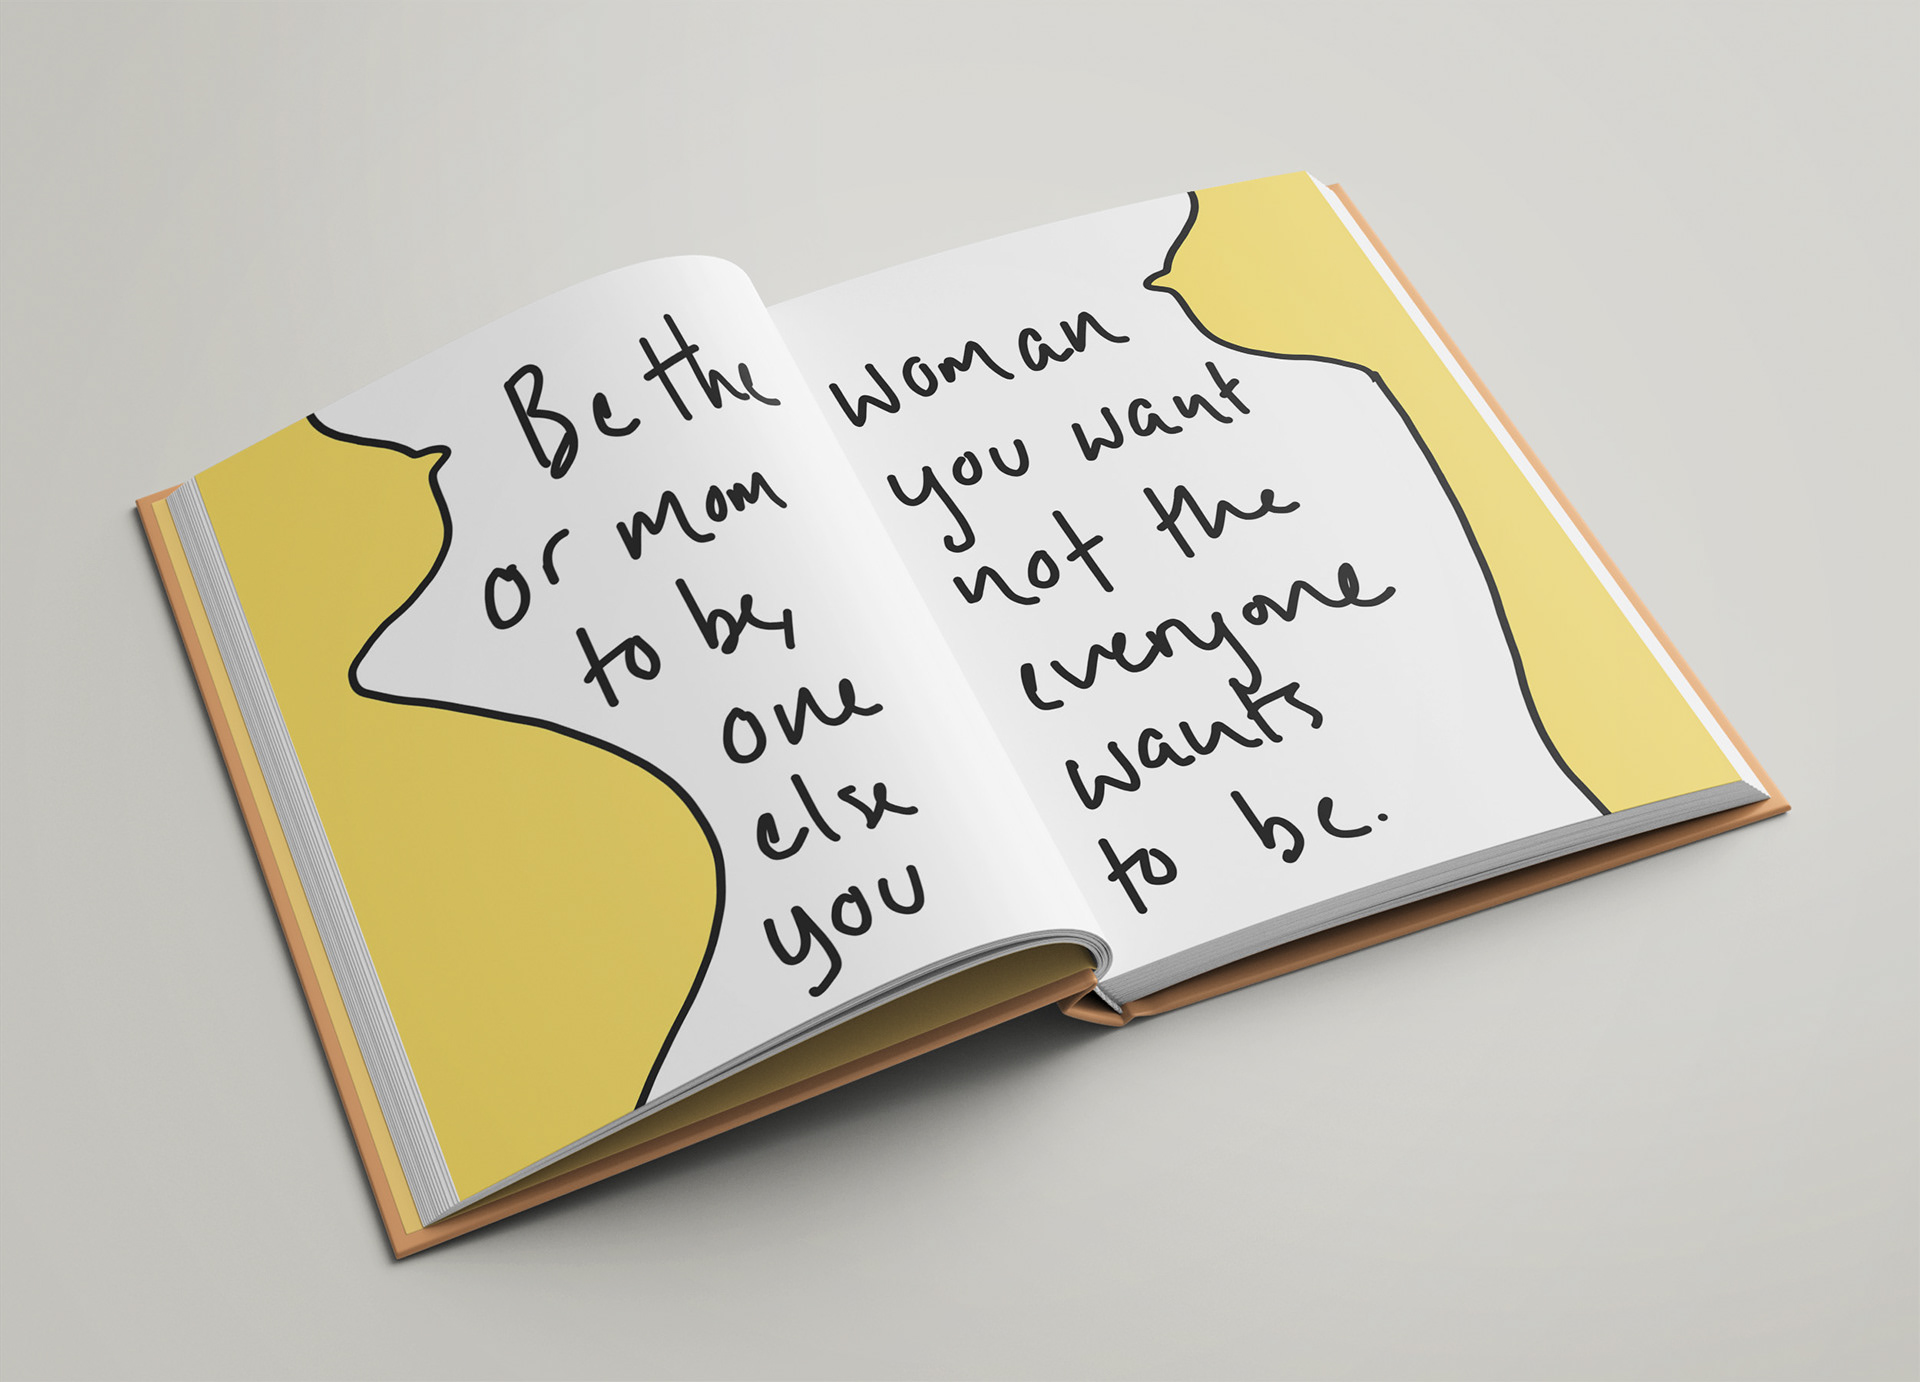 Be the woman
or mom you want
to be, not the
one everyone
else wants
you to be.